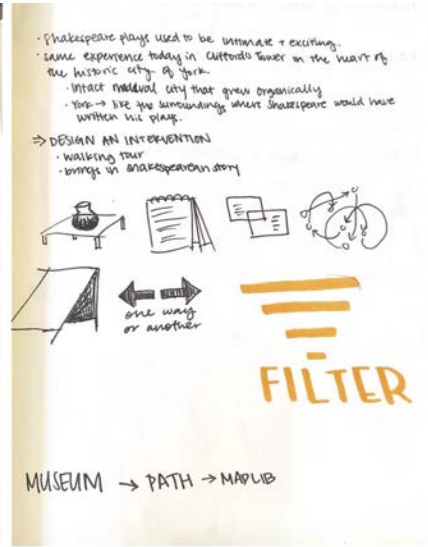 · Shakespeare plays used to be intimate + exciting.
· same experience today in Cliffords Tower in the heart of
the historic city of York.
· Intact medieval city that grew organically
· York → like the surroundings where Shakespeare would have
written his plays.
⇒ DESIGN AN INTERVENTION
· walking tour
· brings in shakespearean story
one way
or another
FILTER
MUSEUM → PATH → MADLIB